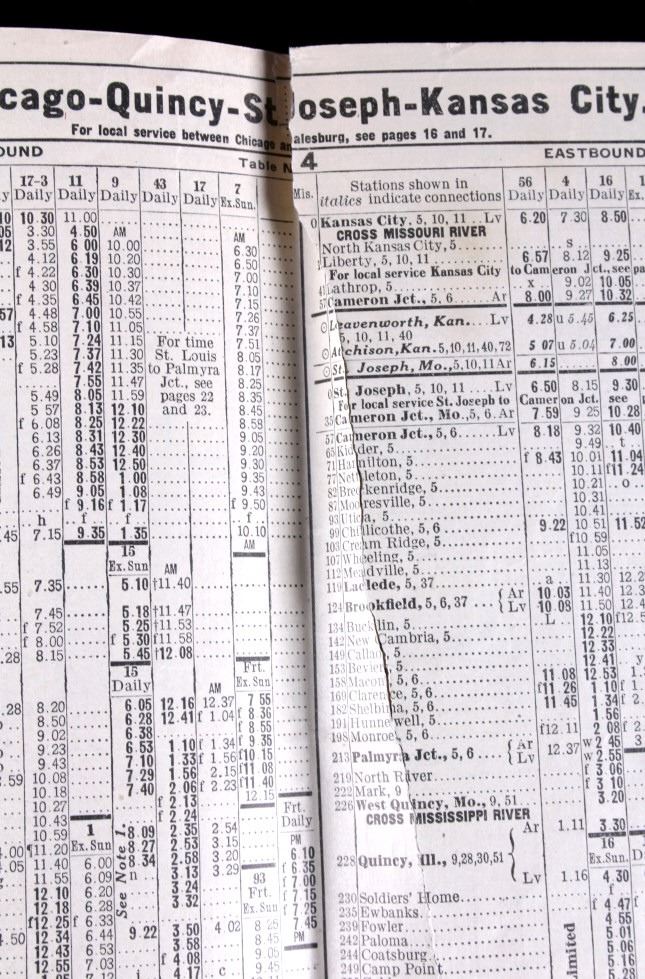 cago-Quincy-St. Joseph-Kansas City.
For local service between Chicago an alesburg, see pages 16 and 17.
OUND Table N 4 EASTBOUND
17-3 11 9 43 17 7 Mis. Stations shown in 56 4 16
Daily Daily Daily Daily Daily Ex.Sun. italics indicate connections Daily Daily Daily
10.30 11.00 0 Kansas City, 5, 10, 11 .. Lv 6.20 7.30 8.50
3.30 4.50 AM AM CROSS MISSOURI RIVER
3.55 6 00 10.00 6.30 North Kansas City, 5 s
f 4.12 6.19 10.20 6.50 Liberty, 5, 10, 11 6.57 8.12 9.25
f 4.22 6.30 10.30 7.00 For local service Kansas City to Cameron Jct., see pa
4.30 6.39 10.37 7.10 Lathrop, 5 x 9.02 10.05
f 4.35 6.45 10.42 7.15 57 Cameron Jct., 5, 6 Ar 8.00 9.27 10.32
4.48 7.00 10.55 7.26
f 4.58 7.10 11.05 7.37 Leavenworth, Kan. Lv 4.28 u 5.45 6.25
5.10 7.24 11.15 For time 7.51 5, 10, 11, 40
5.23 7.37 11.30 St. Louis 8.05 Atchison, Kan. 5,10,11,40,72 5 07 u 5.04 7.00
f 5.28 7.42 11.35 to Palmyra 8.17 St. Joseph, Mo., 5,10,11 Ar 6.15 8.00
7.55 11.47 Jct., see 8.25
5.49 8.05 11.59 pages 22 8.35 0 St. Joseph, 5, 10, 11 Lv 6.50 8.15 9.30
5 57 8.13 12.10 and 23. 8.45 For local service St. Joseph to Cameron Jct. see
f 6.08 8.25 12.22 8.59 35 Cameron Jct., Mo., 5, 6. Ar 7.59 9 25 10.28
6.13 8.31 12.30 9.05 57 Cameron Jct., 5, 6 Lv 8.18 9.32 10.40
6.26 8.43 12.40 9.20 65 Kidder, 5 9.49 t
6.37 8.53 12.50 9.30 71 Hamilton, 5 f 8.43 10.01 11.04
f 6.43 8.58 1.00 9.35 77 Nettleton, 5 10.11 f11.24
6.49 9.05 1.08 9.43 82 Breckenridge, 5 10.21 o
f 9.16 f 1.17 f 9.50 87 Mooresville, 5 10.31
h f f f 93 Utica, 5 10.41
7.15 9.35 1.35 10.10 99 Chillicothe, 5, 6 9.22 10 51 11.52
AM 103 Cream Ridge, 5 f10.59
15 107 Wheeling, 5 11.05
Ex.Sun AM 112 Meadville, 5 11.13
7.35 5.10 †11.40 119 Laclede, 5, 37 a 11.30
7.45 5.18 †11.47 124 Brookfield, 5, 6, 37 Ar 10.03 11.40
f 7.52 5.25 †11.53 Lv 10.08 11.50
f 8.00 f 5.30 f11.58 134 Bucklin, 5 L 12.10
8.15 5.45 †12.08 142 New Cambria, 5 12.22
15 Frt. 149 Callao, 5 12.33
Daily AM Ex.Sun 153 Bevier, 5 12.41 y
8.20 6.05 12.16 12.37 7 55 158 Macon, 5, 6 11 08 12.53
8.50 6.28 12.41 f 1.04 f 8 36 169 Clarence, 5, 6 f11 26 1.10
9.02 6.38 f 8 55 182 Shelbina, 5, 6 11 45 1.34
9.23 6.53 1.10 f 1.34 f 9 35 191 Hunnewell, 5 1.56
9.43 7.10 1.33 f 1.56 f10 15 198 Monroe, 5, 6 f12.11 2 08
10.08 7.29 1.56 2.15 f11 08 213 Palmyra Jct., 5, 6 Ar 12.37 w 2 45
10.18 7.40 2.06 f 2.23 f11 40 Lv w 2.55
10.27 f 2.13 12.15 219 North River f 3 06
10.43 f 2.24 Frt. 222 Mark, 9 f 3 10
10.59 1 8.09 2.35 2.54 Daily 226 West Quincy, Mo., 9, 51 3.20
¶11.20 Ex.Sun 8.27 2.53 3.15 PM CROSS MISSISSIPPI RIVER
11.40 6.00 8.34 2.58 3.20 6.10 Ar 1.11 3.30
11.55 6.09 n 3.13 3.29 f 6.35 16
12.10 6.20 See Note 1. 3.24 93 f 7.00 228 Quincy, Ill., 9,28,30,51 Ex.Sun
12.18 6.28 3.32 Frt. f 7.15 Lv 1.16 4.30
f12.25 f 6.33 Ex.Sun f 7.25 230 Soldiers' Home f
12.34 6.44 9.22 3.50 4.02 8 25 7.45 235 Ewbanks f 4.47
12.43 6.53 3.58 8.45 PM 239 Fowler 4.55
12.55 7.03 f 4.08 9.05 242 Paloma 5.01
4.17 c 9.45 244 Coatsburg 5.06
249 Camp Point 5.16